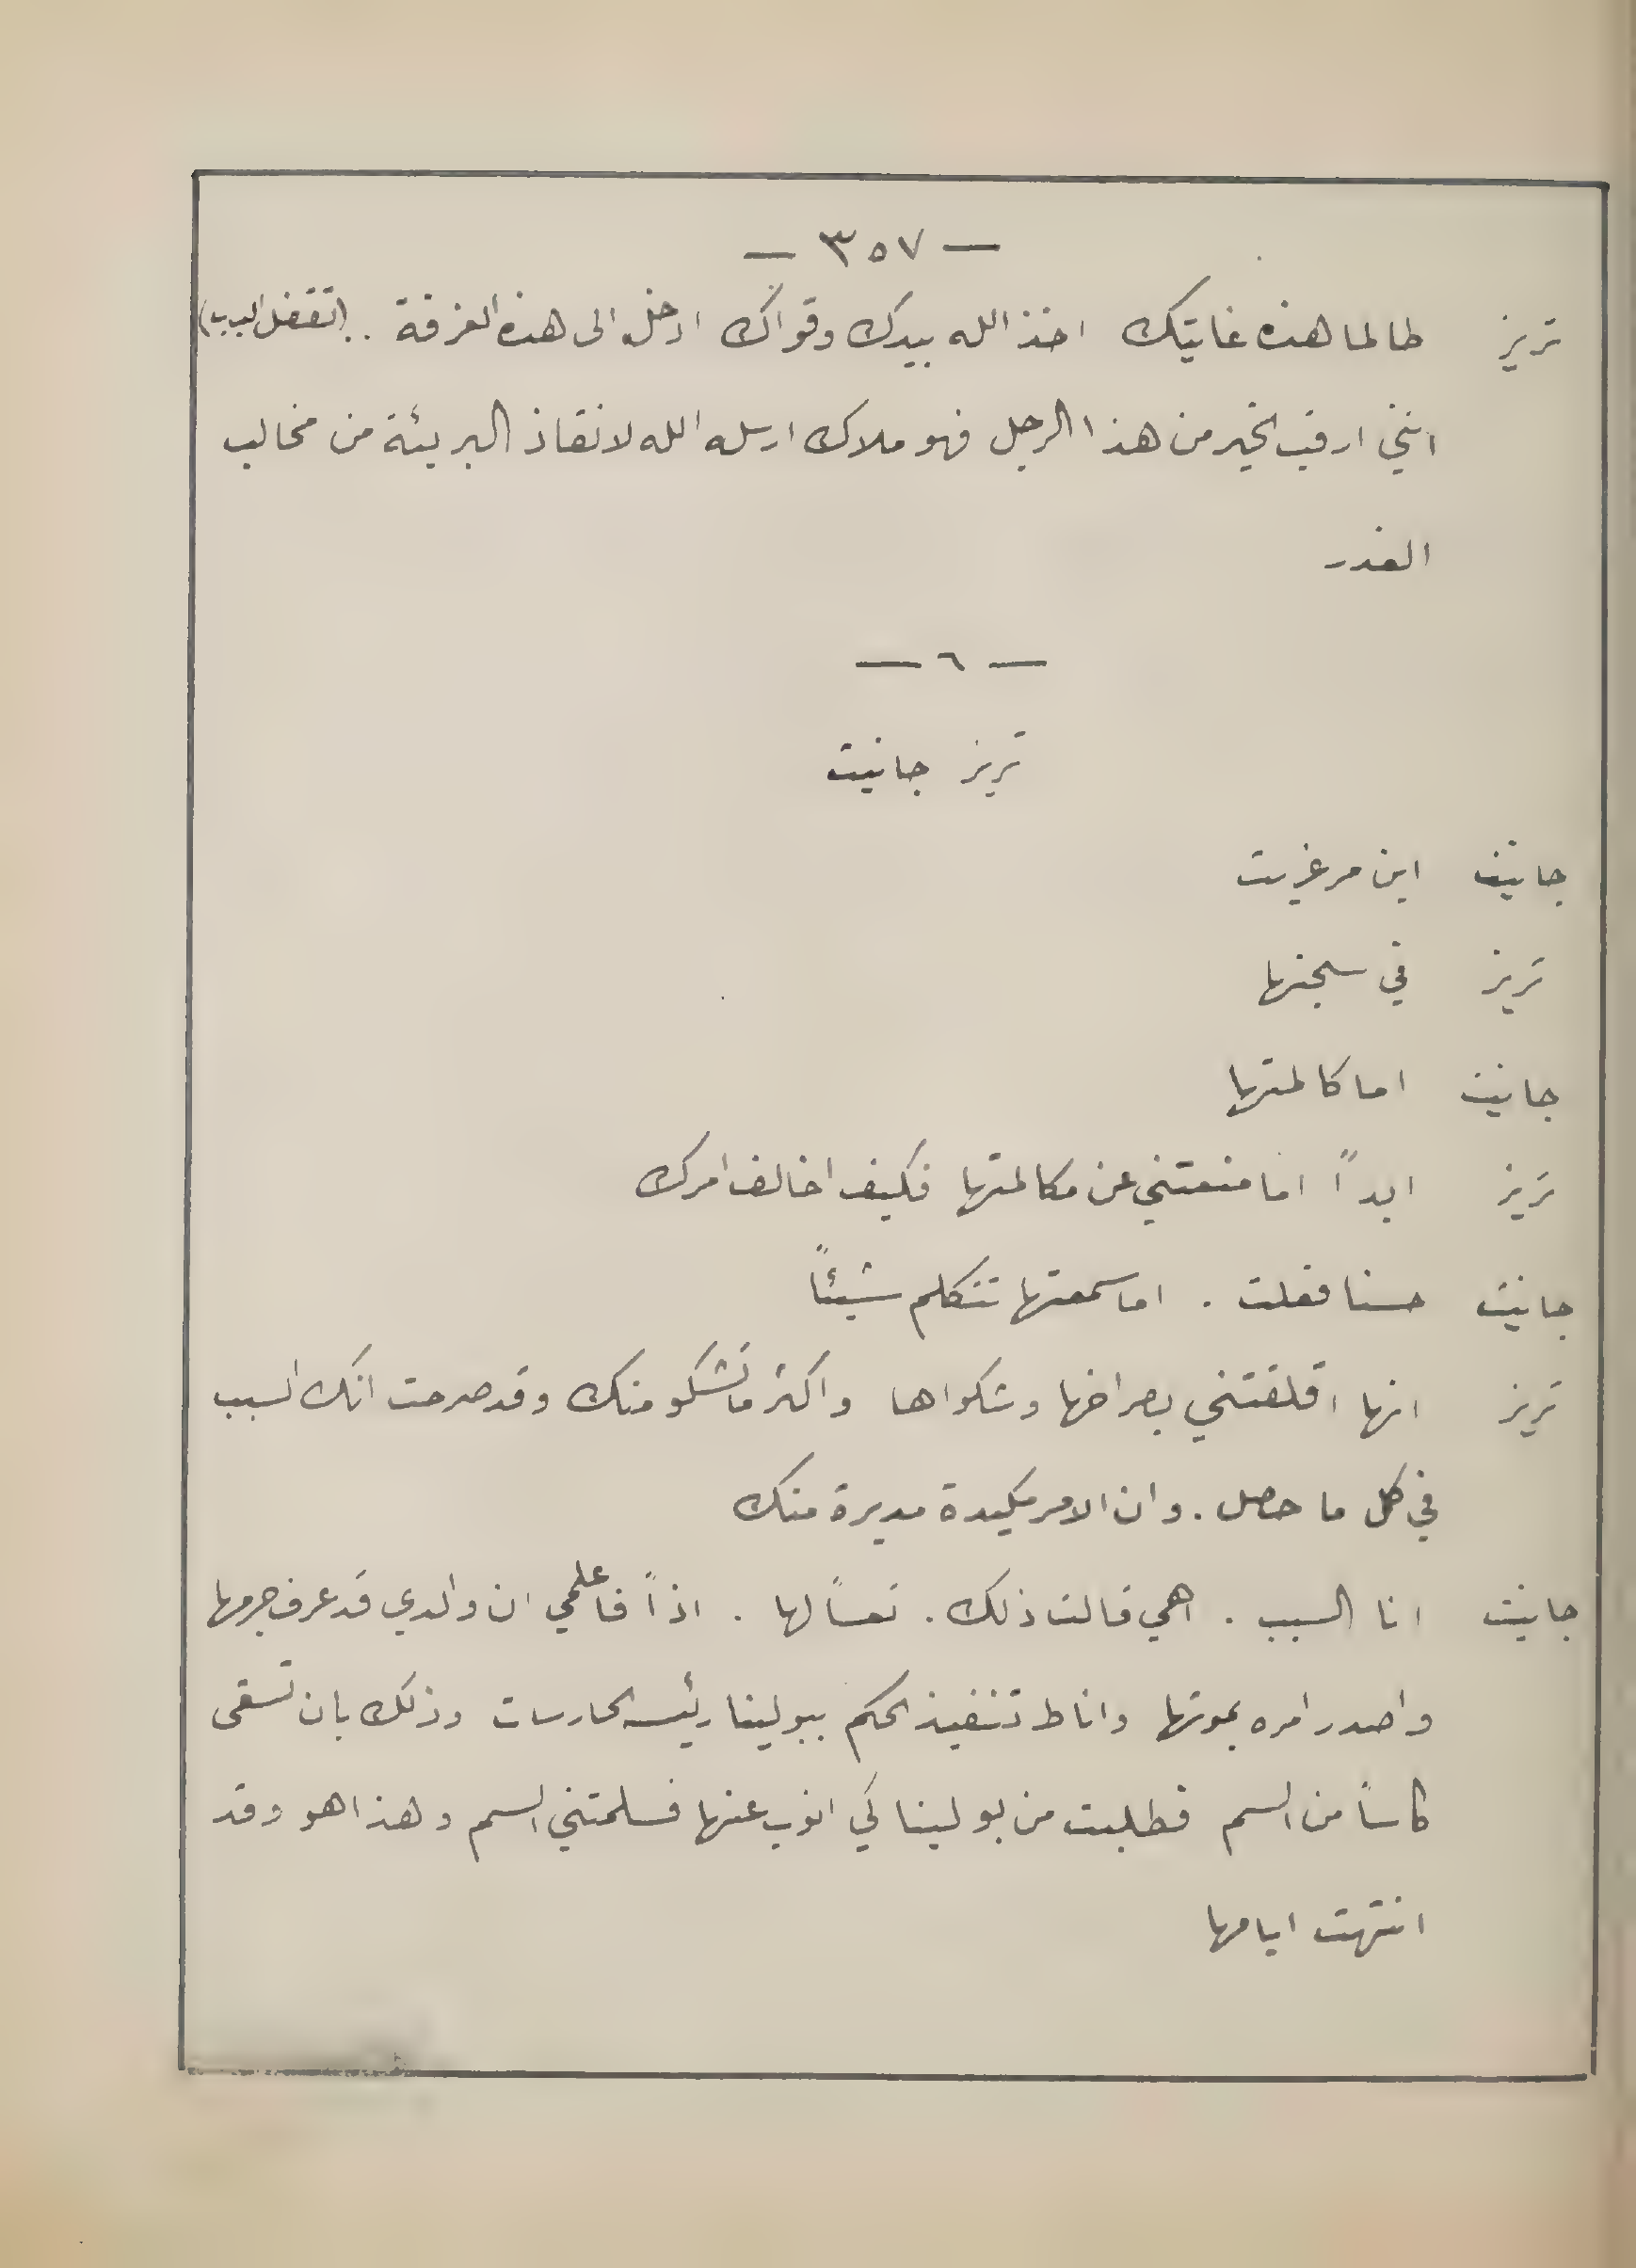 — ٣٥٧ —
تريز طالما هذه غايتك اخذ الله بيدك وقواك ادخل الى هذه الغرفة .. (تقفل الباب)
انني ارقب الخير من هذا الرجل فهو ملاك ارسله الله لانقاذ البريئة من مخالب
الغدر
— ٦ —
تريز جانيت
جانيت اين مرغريت
تريز في سجنها
جانيت اما كالمتها
تريز ابداً اما منعتني عن مكالمتها فكيف اخالف امرك
جانيت حسنا فعلت . اما سمعتها تتكلم شيئاً
تريز انها اقلقتني بصراخها وشكواها واكثر ما تشكو منك وقد صرحت انك السبب
في كل ما حصل . وان الامر مكيدة مدبرة منك
جانيت انا السبب . اهي قالت ذلك . تعساً لها . اذاً فاعلمي ان والدي قد عرف جرمها
واصدر امره بموتها واناط تنفيذ الحكم ببولينا رئيسة الحارسات وذلك بان تسقى
كاساً من السم فطلبت من بولينا كي انوب عنها فسلمتني السم وهذا هو وقد
انتهت ايامها